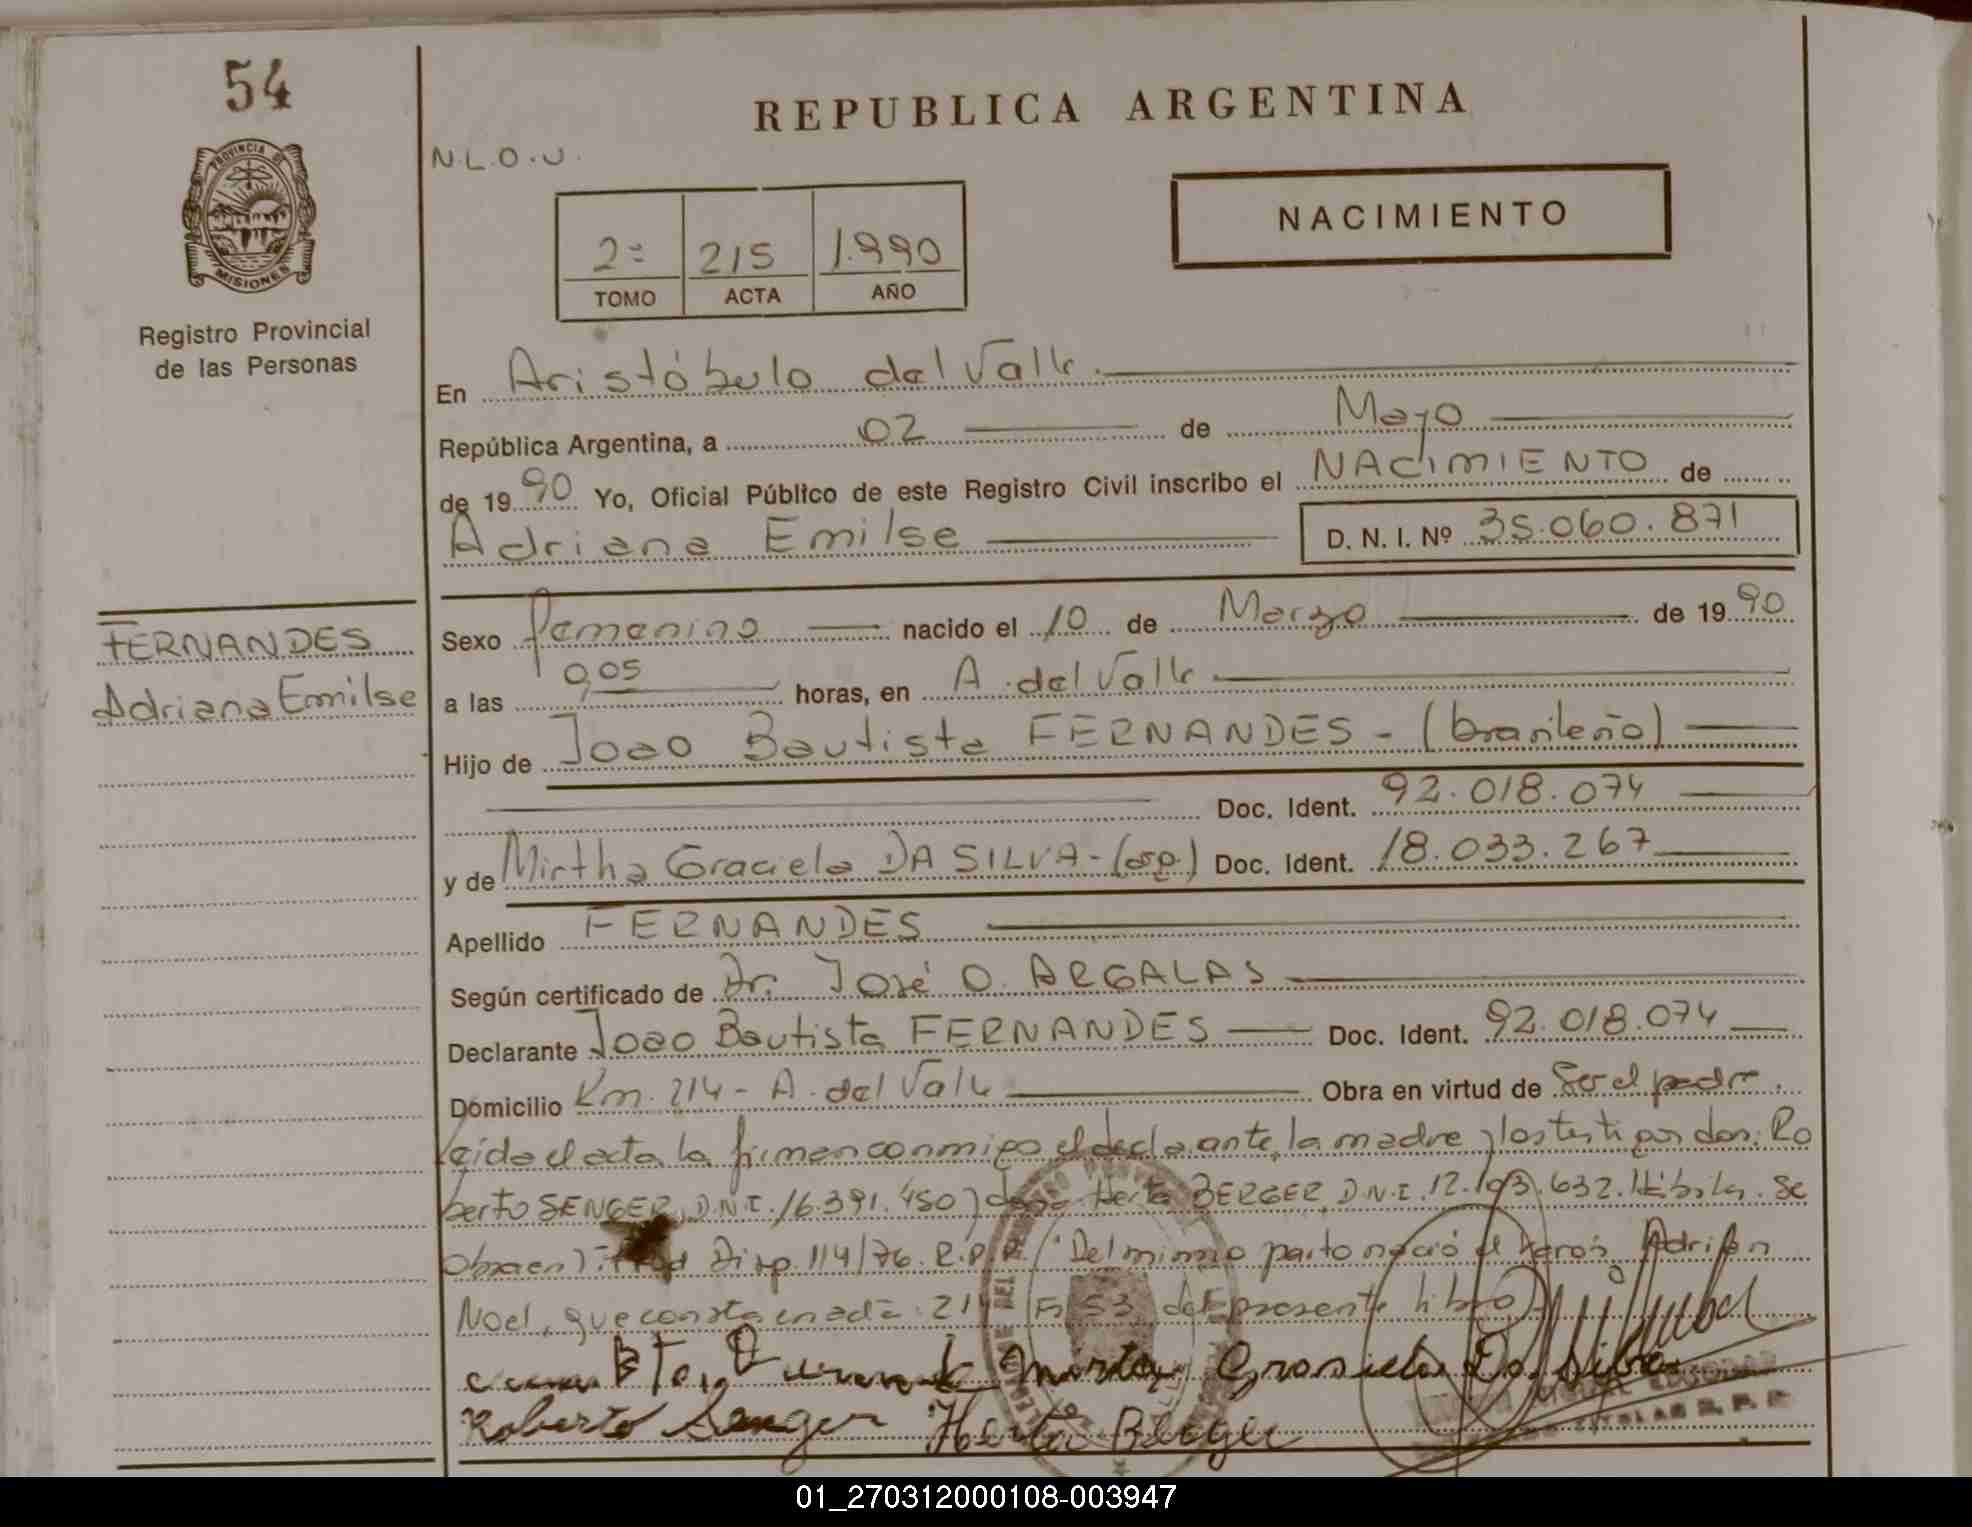 54
REPUBLICA ARGENTINA
PROVINCIA DE
MISIONES
N.L.O.U.
2º 215 1.990
TOMO ACTA AÑO
NACIMIENTO
Registro Provincial
de las Personas
En Aristóbulo del Valle.
República Argentina, a 02 de Mayo
de 1990 Yo, Oficial Público de este Registro Civil inscribo el NACIMIENTO de
Adriana Emilse D. N. I. Nº 35.060.871
FERNANDES
Adriana Emilse
Sexo femenino nacido el 10 de Marzo de 1990
a las 0,05 horas, en A. del Valle
Hijo de Joao Bautista FERNANDES - (brasileño)
Doc. Ident. 92.018.074
y de Mirtha Graciela DA SILVA - (arg.) Doc. Ident. 18.033.267
Apellido FERNANDES
Según certificado de Dr. José O. ARGALAS
Declarante Joao Bautista FERNANDES Doc. Ident. 92.018.074
Domicilio Km. 214 - A. del Valle Obra en virtud de Ser el padre.
Leída el acta la firman conmigo el declarante, la madre y los testigos don: Ro
berto SENGER, D.N.I. 16.391.450 y doña Herta BERGER, D.N.I. 12.193.632. Hábiles. Se
Obra en Disp. 114/76. R.P.P. "Del mismo parto nació el varón Adrian
Noel, que consta en acta: 214 Fº 53 del presente libro
Mirta Grasiela Da Silva
Roberto Senger Herta Berger
TITULAR R. P. P.
01_270312000108-003947